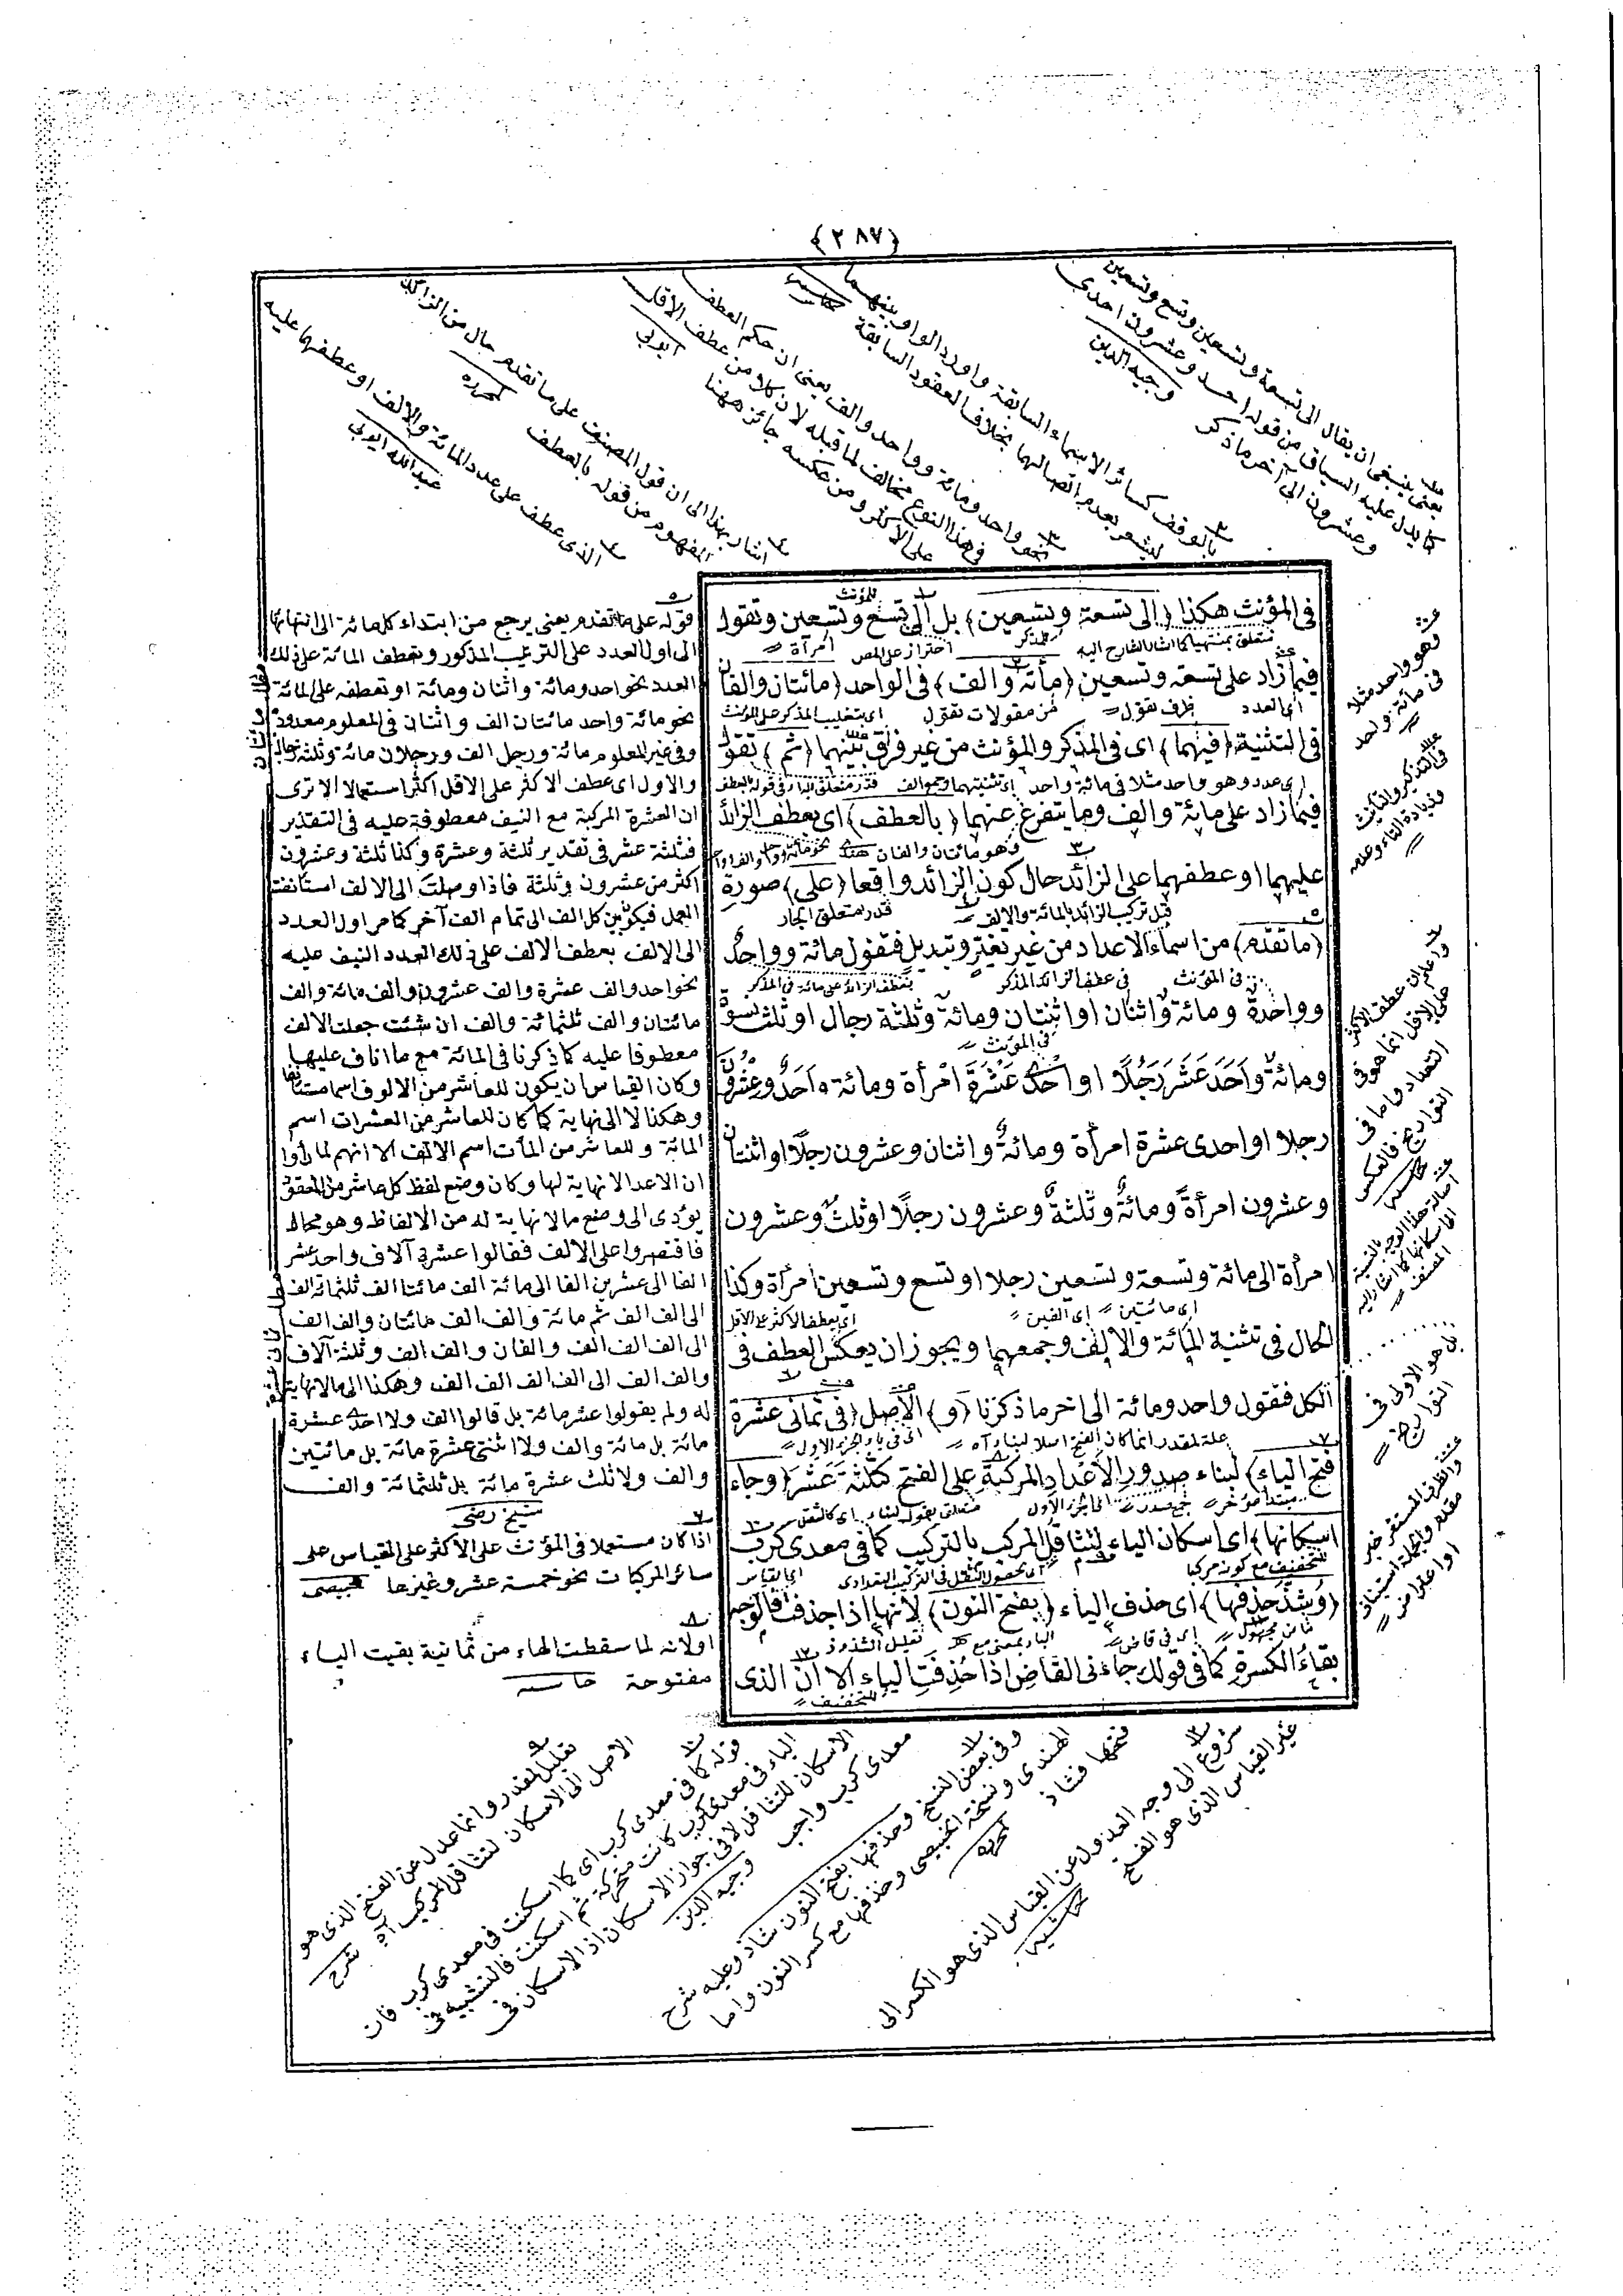 ﴿٢٨٧﴾
يعنى ينبغى ان يقال الى تسعة وتسعين وتسع وتسعين
كما يدل عليه السياق من قوله احد وعشرون احدى
وعشرون الى آخر ما ذكر
وجيه الدين
بالوقف كسائر الاسماء السابقة واورد الواو بينهما
ليشعر بعدم اتصالهما بخلاف العقود السابقة
نحو واحد ومائة وواحد والف يعنى ان حكم العطف
فى هذا النوع مخالف لما قبله لان كلا من عطف الاقل
على الاكثر ومن عكسه جائز ههنا
ايوبى
اشار بهذا الى ان قول المصنف على ما تقدم حال من الزائد
المفهوم من قوله بالعطف
لمحرره
الذى عطف على عدد المائة والالف او عطفهما عليه
عبد الله ايوبى
فى المؤنث هكذا (الى تسعة وتسعين) بل الى تسع وتسعين وتقول
فيما زاد على تسعة وتسعين (مائة والف) فى الواحد (مائتان والفان
فى التثنية (فيهما) اى فى المذكر والمؤنث من غير فرق بينهما (ثم) تقول
فيما زاد على مائة والف وما يتفرع عنهما (بالعطف) اى بعطف الزائد
عليهما او عطفهما على الزائد حال كون الزائد واقعا (على) صورة
(ما تقدم) من اسماء الاعداد من غير تغير وتبديل فتقول مائة وواحد
وواحدة ومائة واثنان او اثنتان ومائة وثلثة رجال او ثلث نسوة
ومائة واحد عشر رجلا او احدى عشرة امرأة ومائة واحد وعشرون
رجلا او احدى عشرة امرأة ومائة واثنان وعشرون رجلا او اثنتان
وعشرون امرأة ومائة وثلثة وعشرون رجلا او ثلث وعشرون
امرأة الى مائة وتسعة وتسعين رجلا او تسع وتسعين امرأة وكذا
الحال فى تثنية المائة والالف وجمعهما ويجوز ان يعكس العطف فى
الكل فتقول واحد ومائة الى اخر ما ذكرنا (و) الاصل (فى ثمانى عشرة
فتح الياء) لبناء صدور الاعداد المركبة على الفتح كثلثة عشر (وجاء
اسكانها) اى اسكان الياء لتثاقل المركب بالتركيب كما فى معدى كرب
(وشذ حذفها) اى حذف الياء (بفتح النون) لانها اذا حذفت فالوجه
بقاء الكسرة كما فى قولك جاءنى القاض اذا حذفت الياء الا ان الذى
قوله على ما تقدم يعنى يرجع من ابتداء كل مائة الى انتهائها
الى اول العدد على الترتيب المذكور وتعطف المائة على ذلك
العدد نحو واحد ومائة واثنان ومائة او تعطفه على المائة
نحو مائة واحد مائتان الف واثنان فى المعلوم معدوده
وفى غير المعلوم مائة ورجل الف ورجلان مائة وثلثة رجال
والاول اى عطف الاكثر على الاقل اكثر استعمالا الا ترى
ان العشرة المركبة مع النيف معطوفة عليه فى التقدير
فثلثة عشر فى تقدير ثلثة وعشرة وكذا ثلثة وعشرون
اكثر من عشرون وثلثة فاذا وصلت الى الالف استأنفت
العمل فيكون من كل الف الى تمام الف آخر كما مر اول العدد
الى الالف بعطف الالف على ذلك العدد النيف عليه
نحو احد والف عشرة والف عشرون والف مائة والف
مائتان والف ثلثمائة والف ان شئت جعلت الالف
معطوفا عليه كما ذكرنا فى المائة مع ما اناف عليها
وكان القياس ان يكون للعاشر من الالوف اسما مستأنفا
وهكذا لا الى نهاية كما كان للعاشر من العشرات اسم
المائة وللعاشر من المآت اسم الالف الا انهم لما رأوا
ان الاعداد لا نهاية لها وكان وضع لفظ كل عاشر من العقود
يؤدى الى وضع ما لا نهاية له من الالفاظ وهو محال
فاقتصروا على الالف فقالوا عشرة آلاف واحد عشر
الفا الى عشرين الفا الى مائة الف مائتا الف ثلثمائة الف
الى الف الف ثم مائة والف الف مائتان والف الف
الى الف الف الف والفان والف الف وثلثة آلاف
والف الف الى الف الف الف الف وهكذا الى ما لا نهاية
له ولم يقولوا عشر مائة بل قالوا الف ولا احدى عشرة
مائة بل مائة والف ولا اثنتى عشرة مائة بل مائتين
والف ولا ثلث عشرة مائة بل ثلثمائة والف
شيخ رضى
اذا كان مستعملا فى المؤنث على الاكثر على القياس على
سائر المركبات نحو خمسة عشر وغيرها خبيصى
او لانه لما سقطت الهاء من ثمانية بقيت الياء
مفتوحة
وهو واحد مثلا
فى مائة وواحد
فى التذكير والتأنيث
وزيادة التاء وعدمه
واعلم ان عطف الاكثر
على الاقل انما هو فى
التعداد واما فى
التواريخ فالعكس
اصالة هذا الوجه بالنسبة
الى اسكانها كما اشار اليه
المصنف
بل هو الاولى فى
التواريخ
والظرف المستقر خبر
مقدم والجملة استيناف
او اعتراض
تعليل لمقدر وانما عدل عن الفتح الذى هو
الاصل الى الاسكان لتثاقل المركب آه شرح
قوله كما فى معدى كرب اى كما اسكنت فى معدى كرب فان
الياء فى معدى كرب كانت متحركة ثم اسكنت فالتشبيه فى
الاسكان للتثاقل لا فى جواز الاسكان اذ الاسكان فى
معدى كرب واجب وجيه الدين
وفى بعض النسخ وحذفها بفتح النون شاذ وعليه شرح
الهندى ونسخة الخبيصى وحذفها مع كسر النون واما
فتحها فشاذ لمحرره
شروع الى وجه العدول عن القياس الذى هو الكسر الى
غير القياس الذى هو الفتح حاشيه